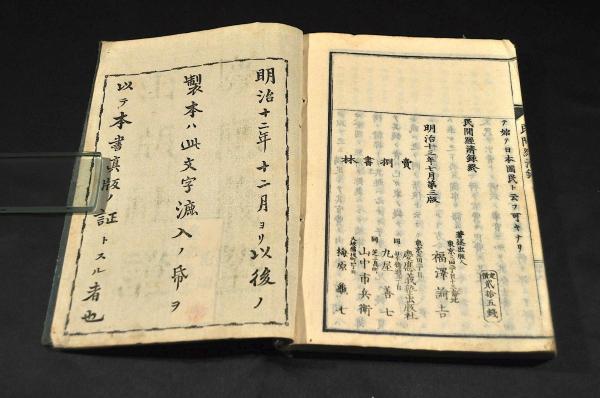 テ始テ日本國民ト云フ可キナリ
民間經濟録終
定價 貳拾五錢
明治十三年七月第三版
著述出版人
福澤諭吉
賣捌書林
慶應義塾出版社
同
丸屋善七
同
山中市兵衛
梅原亀七
明治十二年十二月ヨリ以後ノ
製本ハ此文字漉入ノ帋ヲ
以テ本書真版ノ証トスル者也